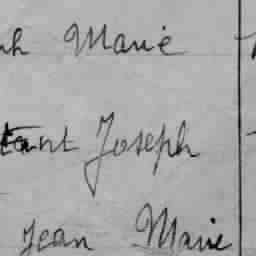 Marie
Joseph
Jean Marie